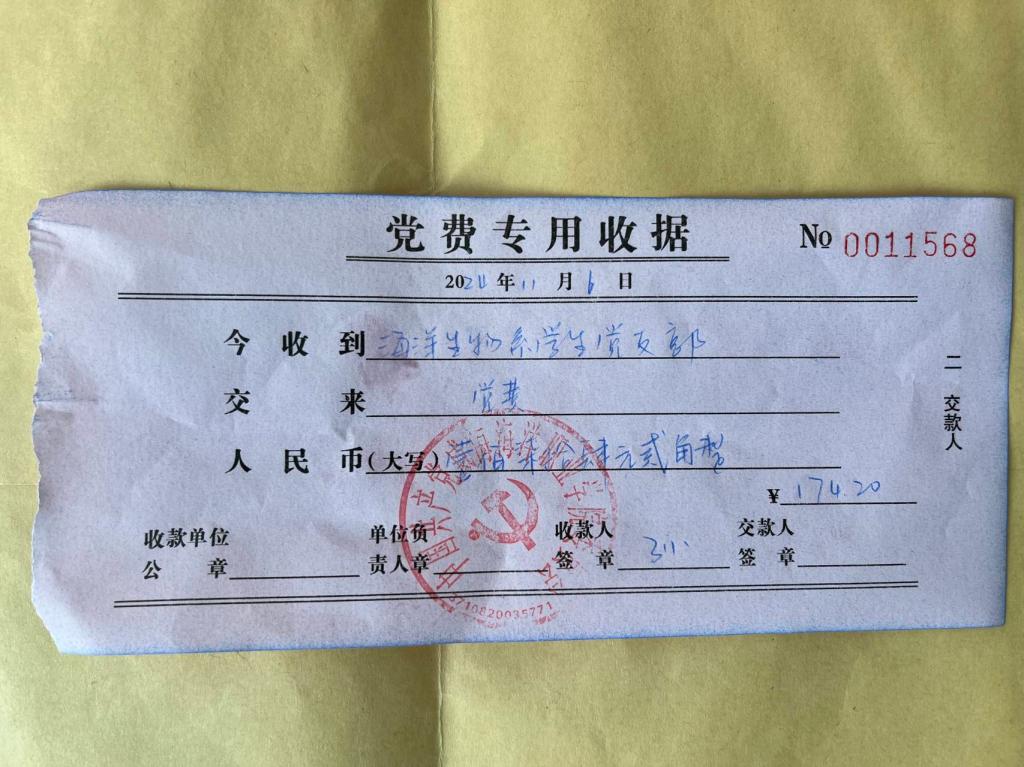 党费专用收据
No 0011568
2024年11月6日
今收到 海洋生物系学生党支部
交来 党费
人民币(大写) 壹佰柒拾肆元贰角整
¥ 174.20
收款单位公章
单位负责人章
收款人签章
交款人签章
二 交款人
3710820035771